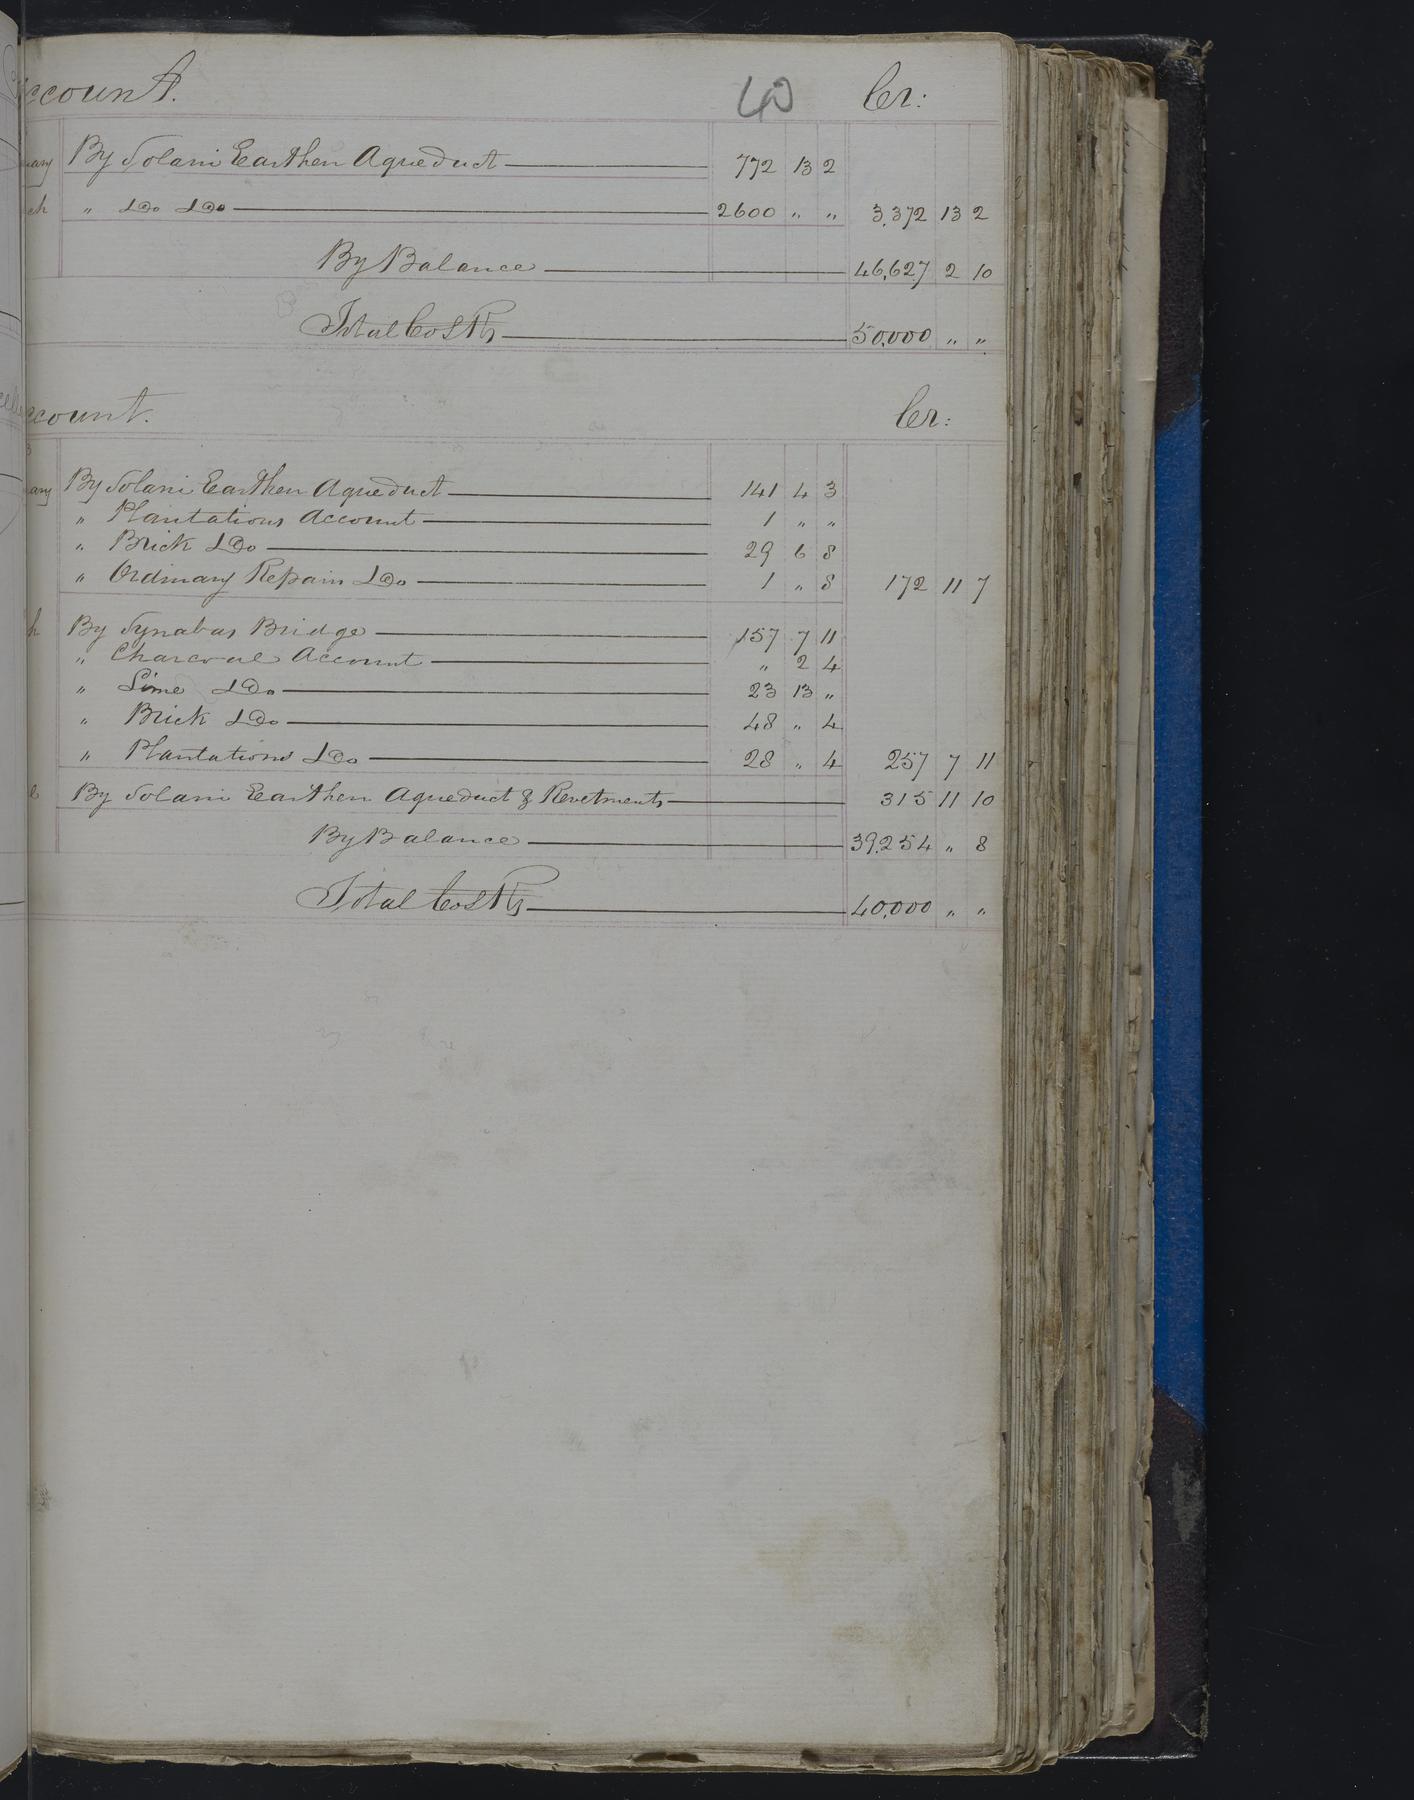 ccount. 40 Cr:
uary By Solani Earthen Aqueduct 772 13 2
ch " Do Do 2600 " " 3,372 13 2
By Balance 46,627 2 10
Total Co's Rs 50,000 " "
ccount. Cr:
3
uary By Solani Earthen Aqueduct 141 4 3
" Plantations Account 1 " "
" Brick Do 29 6 8
" Ordinary Repairs Do 1 " 8 172 11 7
h By Synabas Bridge 157 7 11
" Charcoal Account " 2 4
" Lime Do 23 13 "
" Brick Do 48 " 4
" Plantations Do 28 " 4 257 7 11
e By Solani Earthen Aqueduct & Revetments 315 11 10
By Balance 39,254 " 8
Total Co's Rs 40,000 " "